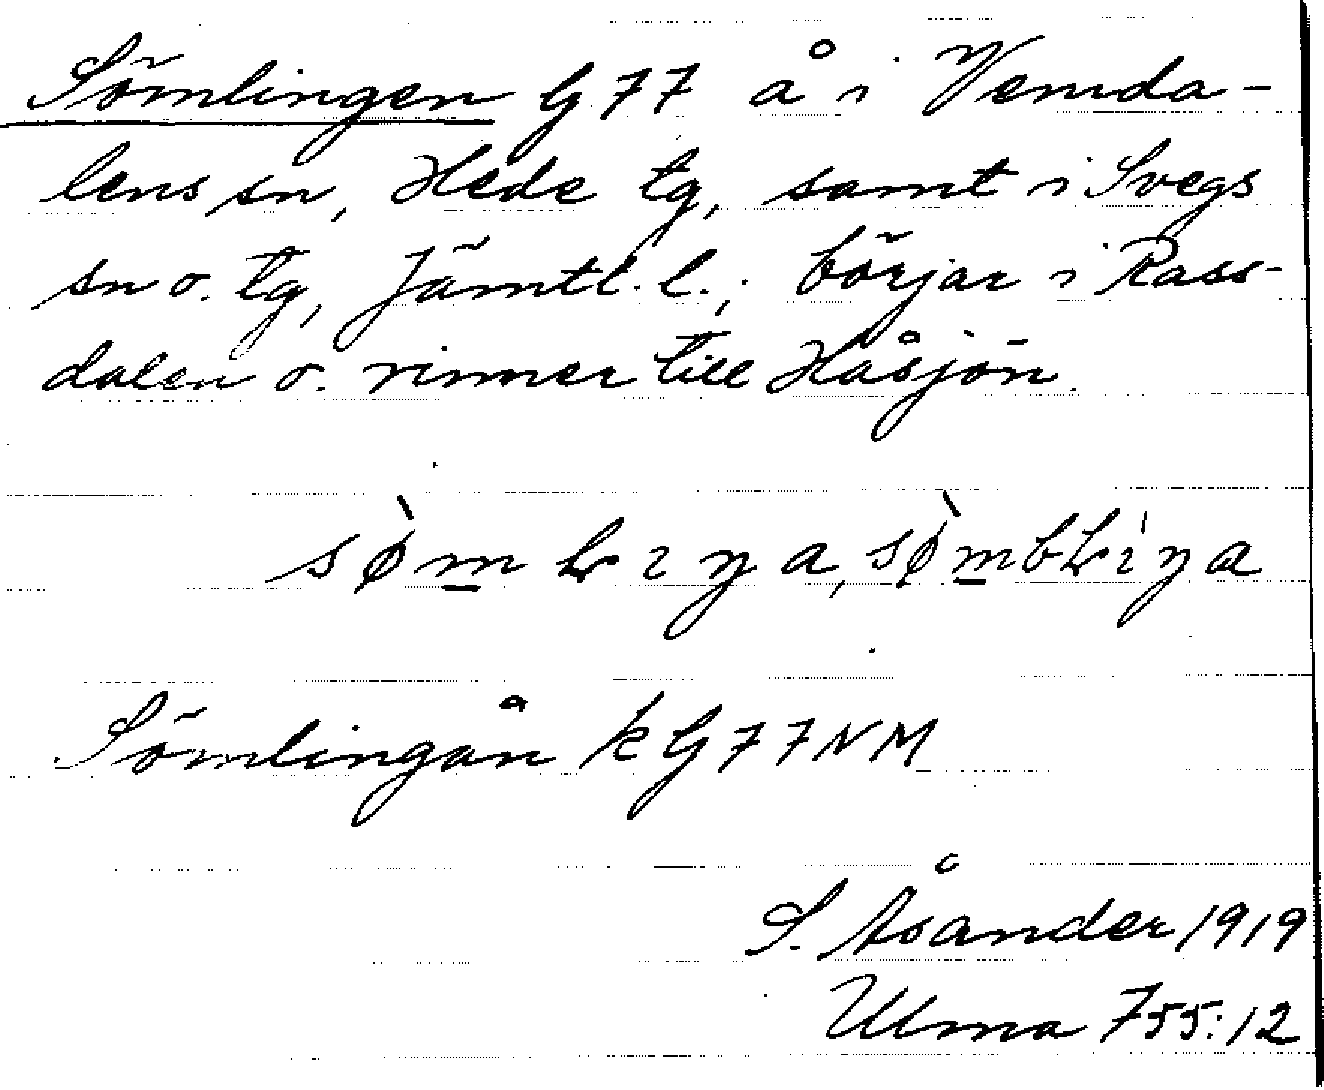 Sömlingen G 77 å i Vemda-
lens sn, Hede tg, samt i Svegs
sn o. tg, Jämtl. l.; börjar i Rass-
dalen o. rinner till Håsjön.
Sömlingån k G 77 NM
S. Åsander 1919
Ulma 755:12